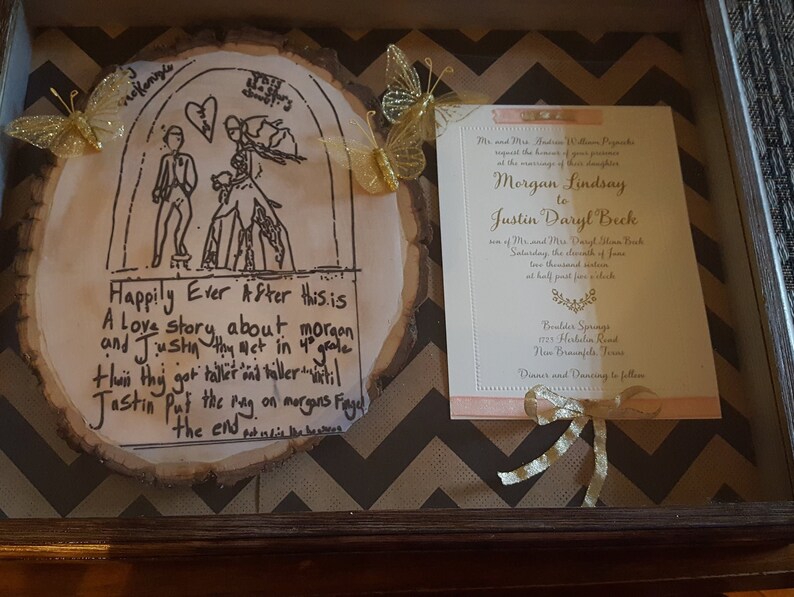 Happily Ever After this is
A Love story about morgan
and Justin thy met in 4th grade
thwn thy got taller and taller untill
Justin Put the ring on morgans Finger
the end
Mr. and Mrs. Andrew William
request the honour of your presence
at the marriage of their daughter
Morgan Lindsay
to
Justin Daryl Beck
son of Mr. and Mrs. Daryl Glenn Beck
Saturday, the eleventh of June
two thousand sixteen
at half past five o'clock
Boulder Springs
1725 Herbelin Road
New Braunfels, Texas
Dinner and Dancing to follow